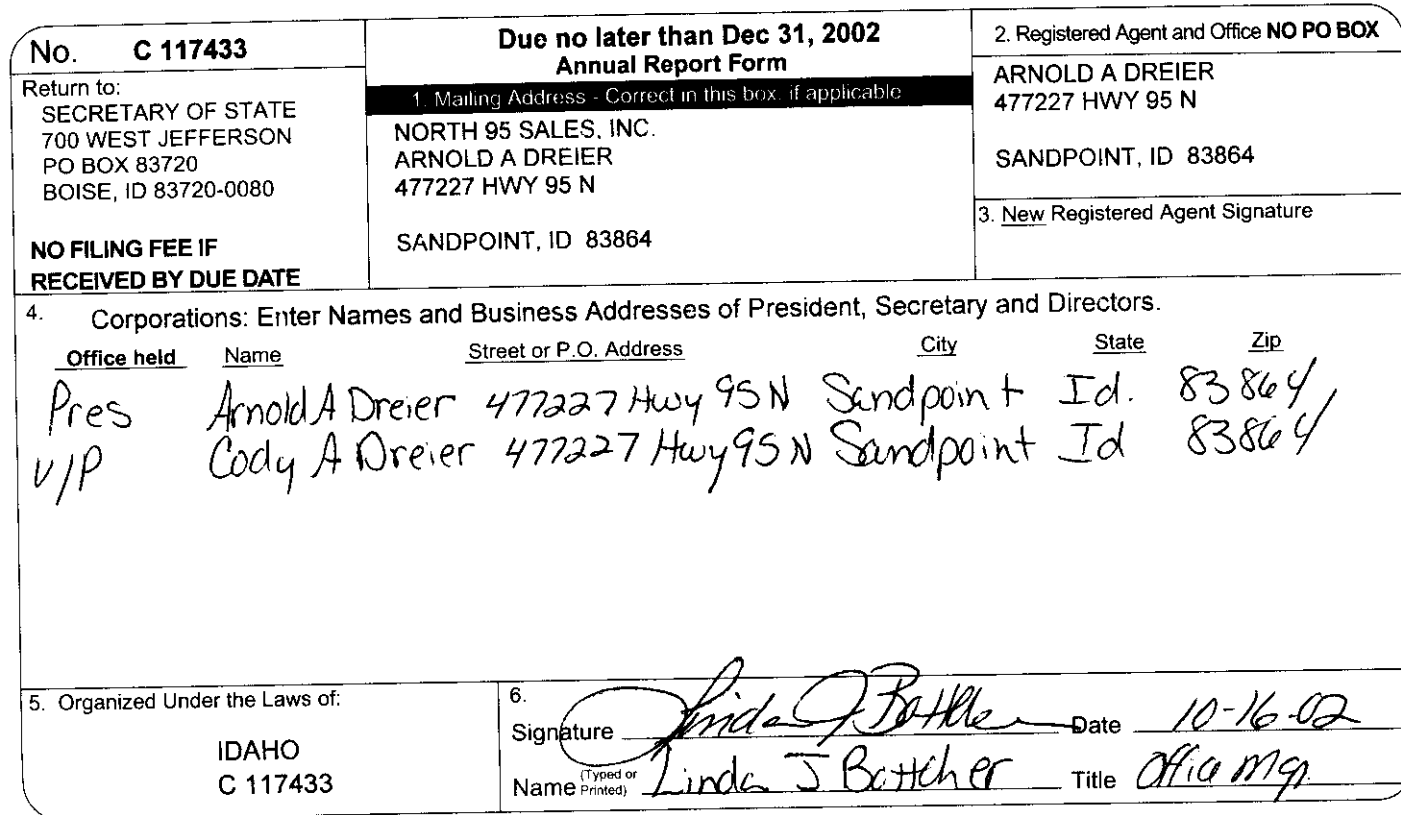 No. C 117433
Return to:
SECRETARY OF STATE
700 WEST JEFFERSON
PO BOX 83720
BOISE, ID 83720-0080
NO FILING FEE IF
RECEIVED BY DUE DATE
Due no later than Dec 31, 2002
Annual Report Form
1. Mailing Address - Correct in this box, if applicable
NORTH 95 SALES, INC.
ARNOLD A DREIER
477227 HWY 95 N
SANDPOINT, ID 83864
2. Registered Agent and Office NO PO BOX
ARNOLD A DREIER
477227 HWY 95 N
SANDPOINT, ID 83864
3. New Registered Agent Signature
4. Corporations: Enter Names and Business Addresses of President, Secretary and Directors.
Office held Name Street or P.O. Address City State Zip
Pres Arnold A Dreier 477227 Hwy 95 N Sandpoint Id. 83864
V/P Cody A Dreier 477227 Hwy 95 N Sandpoint Id 83864
5. Organized Under the Laws of:
IDAHO
C 117433
6.
Signature Linda J Bottcher Date 10-16-02
Name (Typed or Printed) Linda J Bottcher Title Office Mgr.